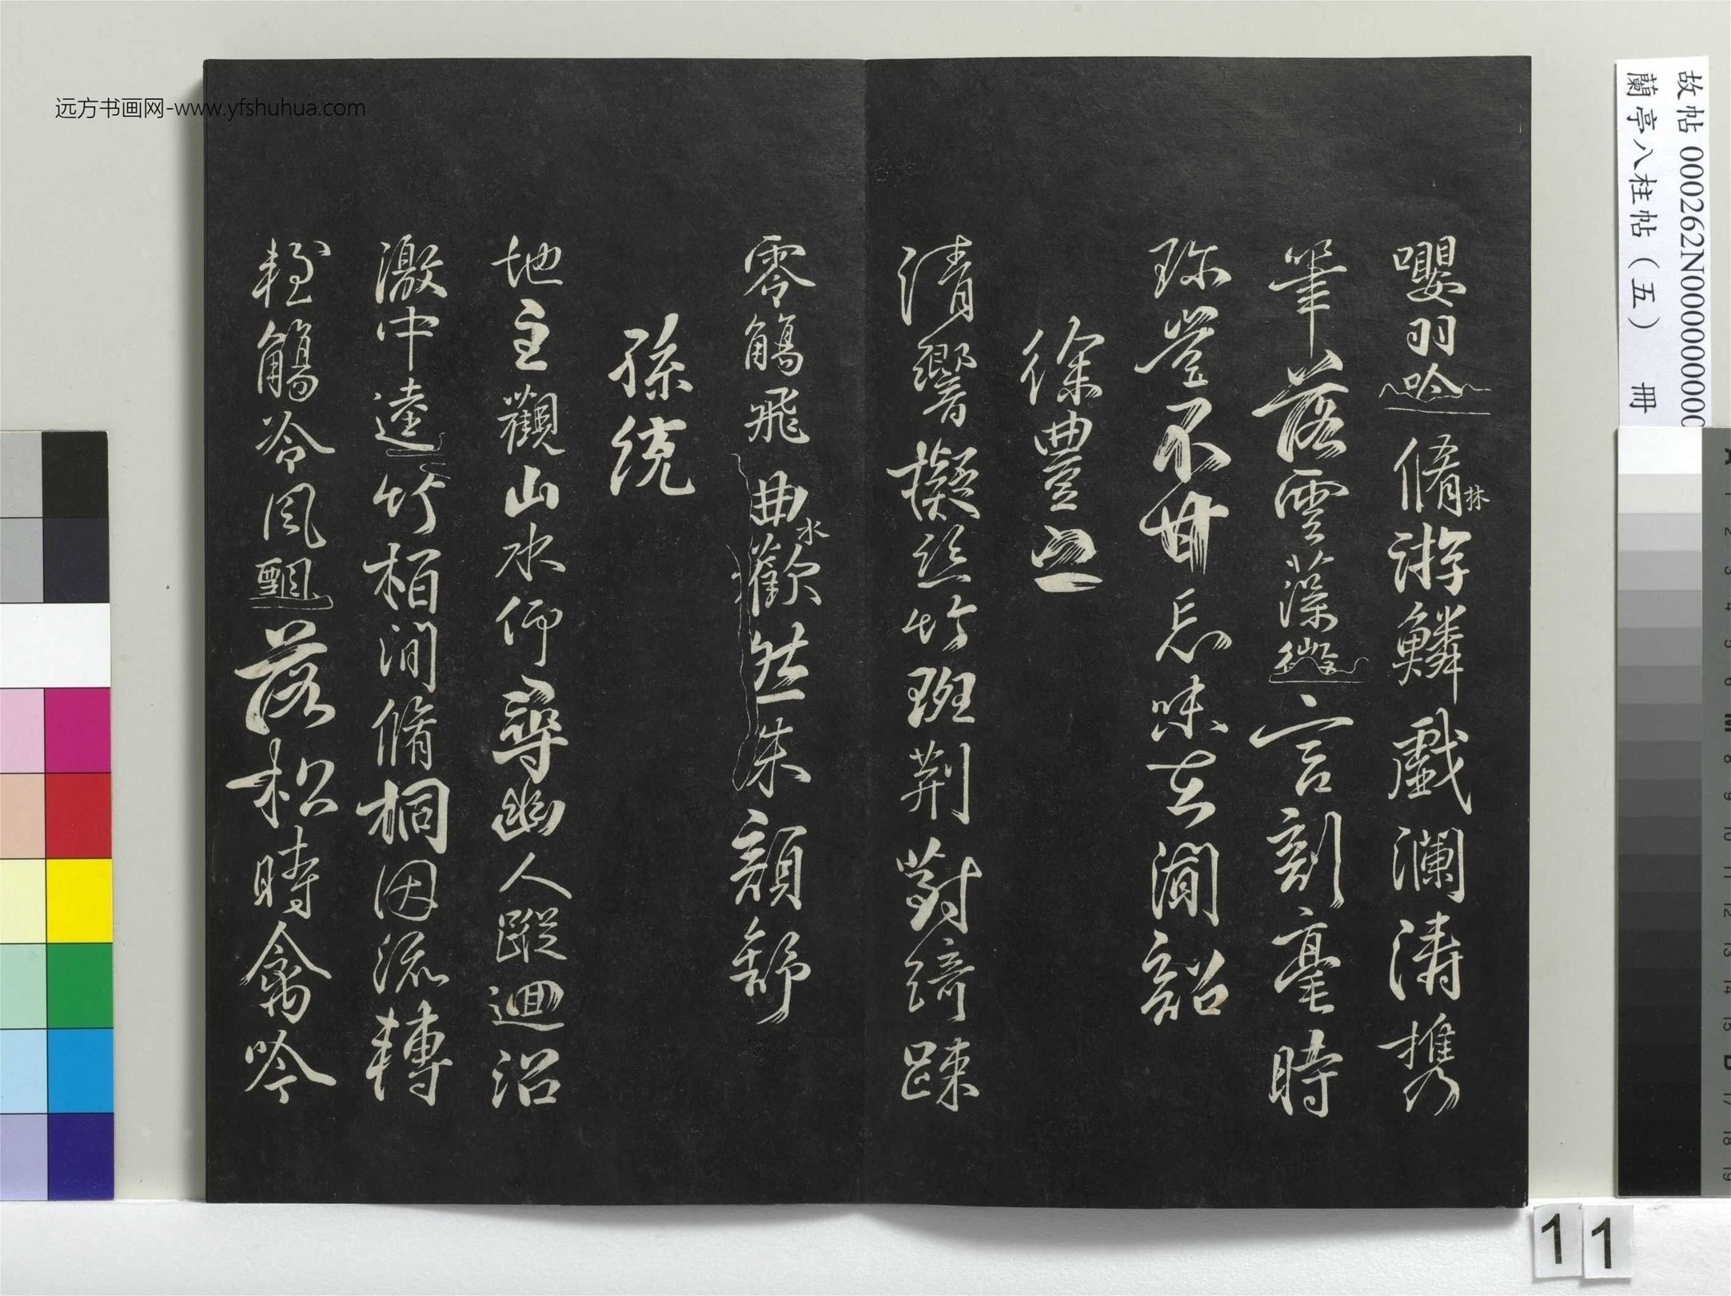 远方书画网-www.yfshuhua.com
嚶羽吟脩林游鱗戲瀾濤攜
筆落雲藻微言剖毫時
珍豈不甘忘味在聞韶
徐豐之
清響擬絲竹班荊對綺疎
零觴飛曲水歡然朱顏舒
孫統
地主觀山水仰尋幽人蹤迴沼
激中逵竹柏間脩桐因流轉
輕觴冷風飄落松時禽吟
故帖 000262N000000000
蘭亭八柱帖(五) 冊
11